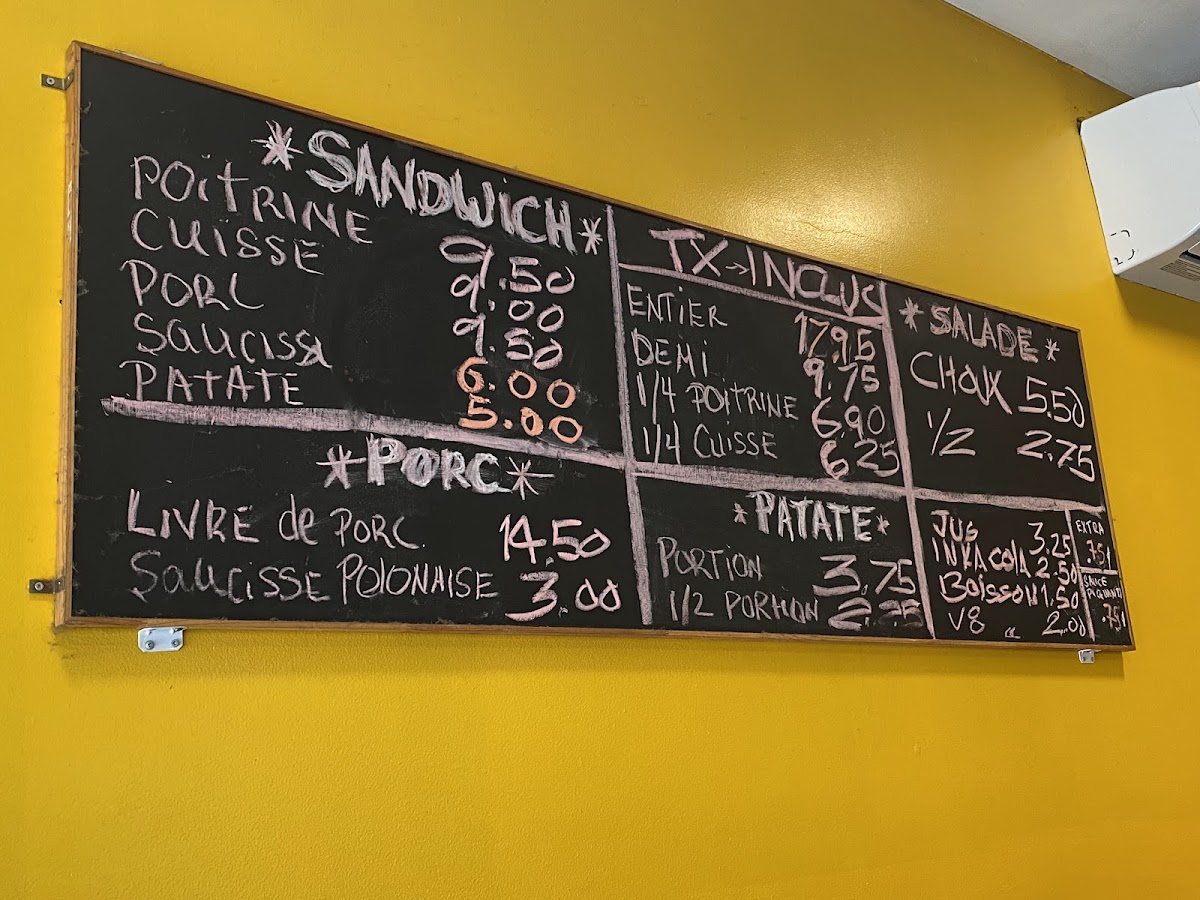 *SANDWICH*
POITRINE 9.50
CUISSE 9.00
PORC 9.50
SAUCISSE 6.00
PATATE 5.00
*PORC*
LIVRE de PORC 14.50
SAUCISSE POLONAISE 3.00
TX→INCLUS
ENTIER 17.95
DEMI 9.75
1/4 POITRINE 6.90
1/4 CUISSE 6.25
*PATATE*
PORTION 3.75
1/2 PORTION 2.25
*SALADE*
CHOUX 5.50
1/2 2.75
JUS 3.25
INKA COLA 2.50
BOISSON 1.50
V8 2.00
EXTRA
.75¢
SAUCE
PIQUANTE
.75¢